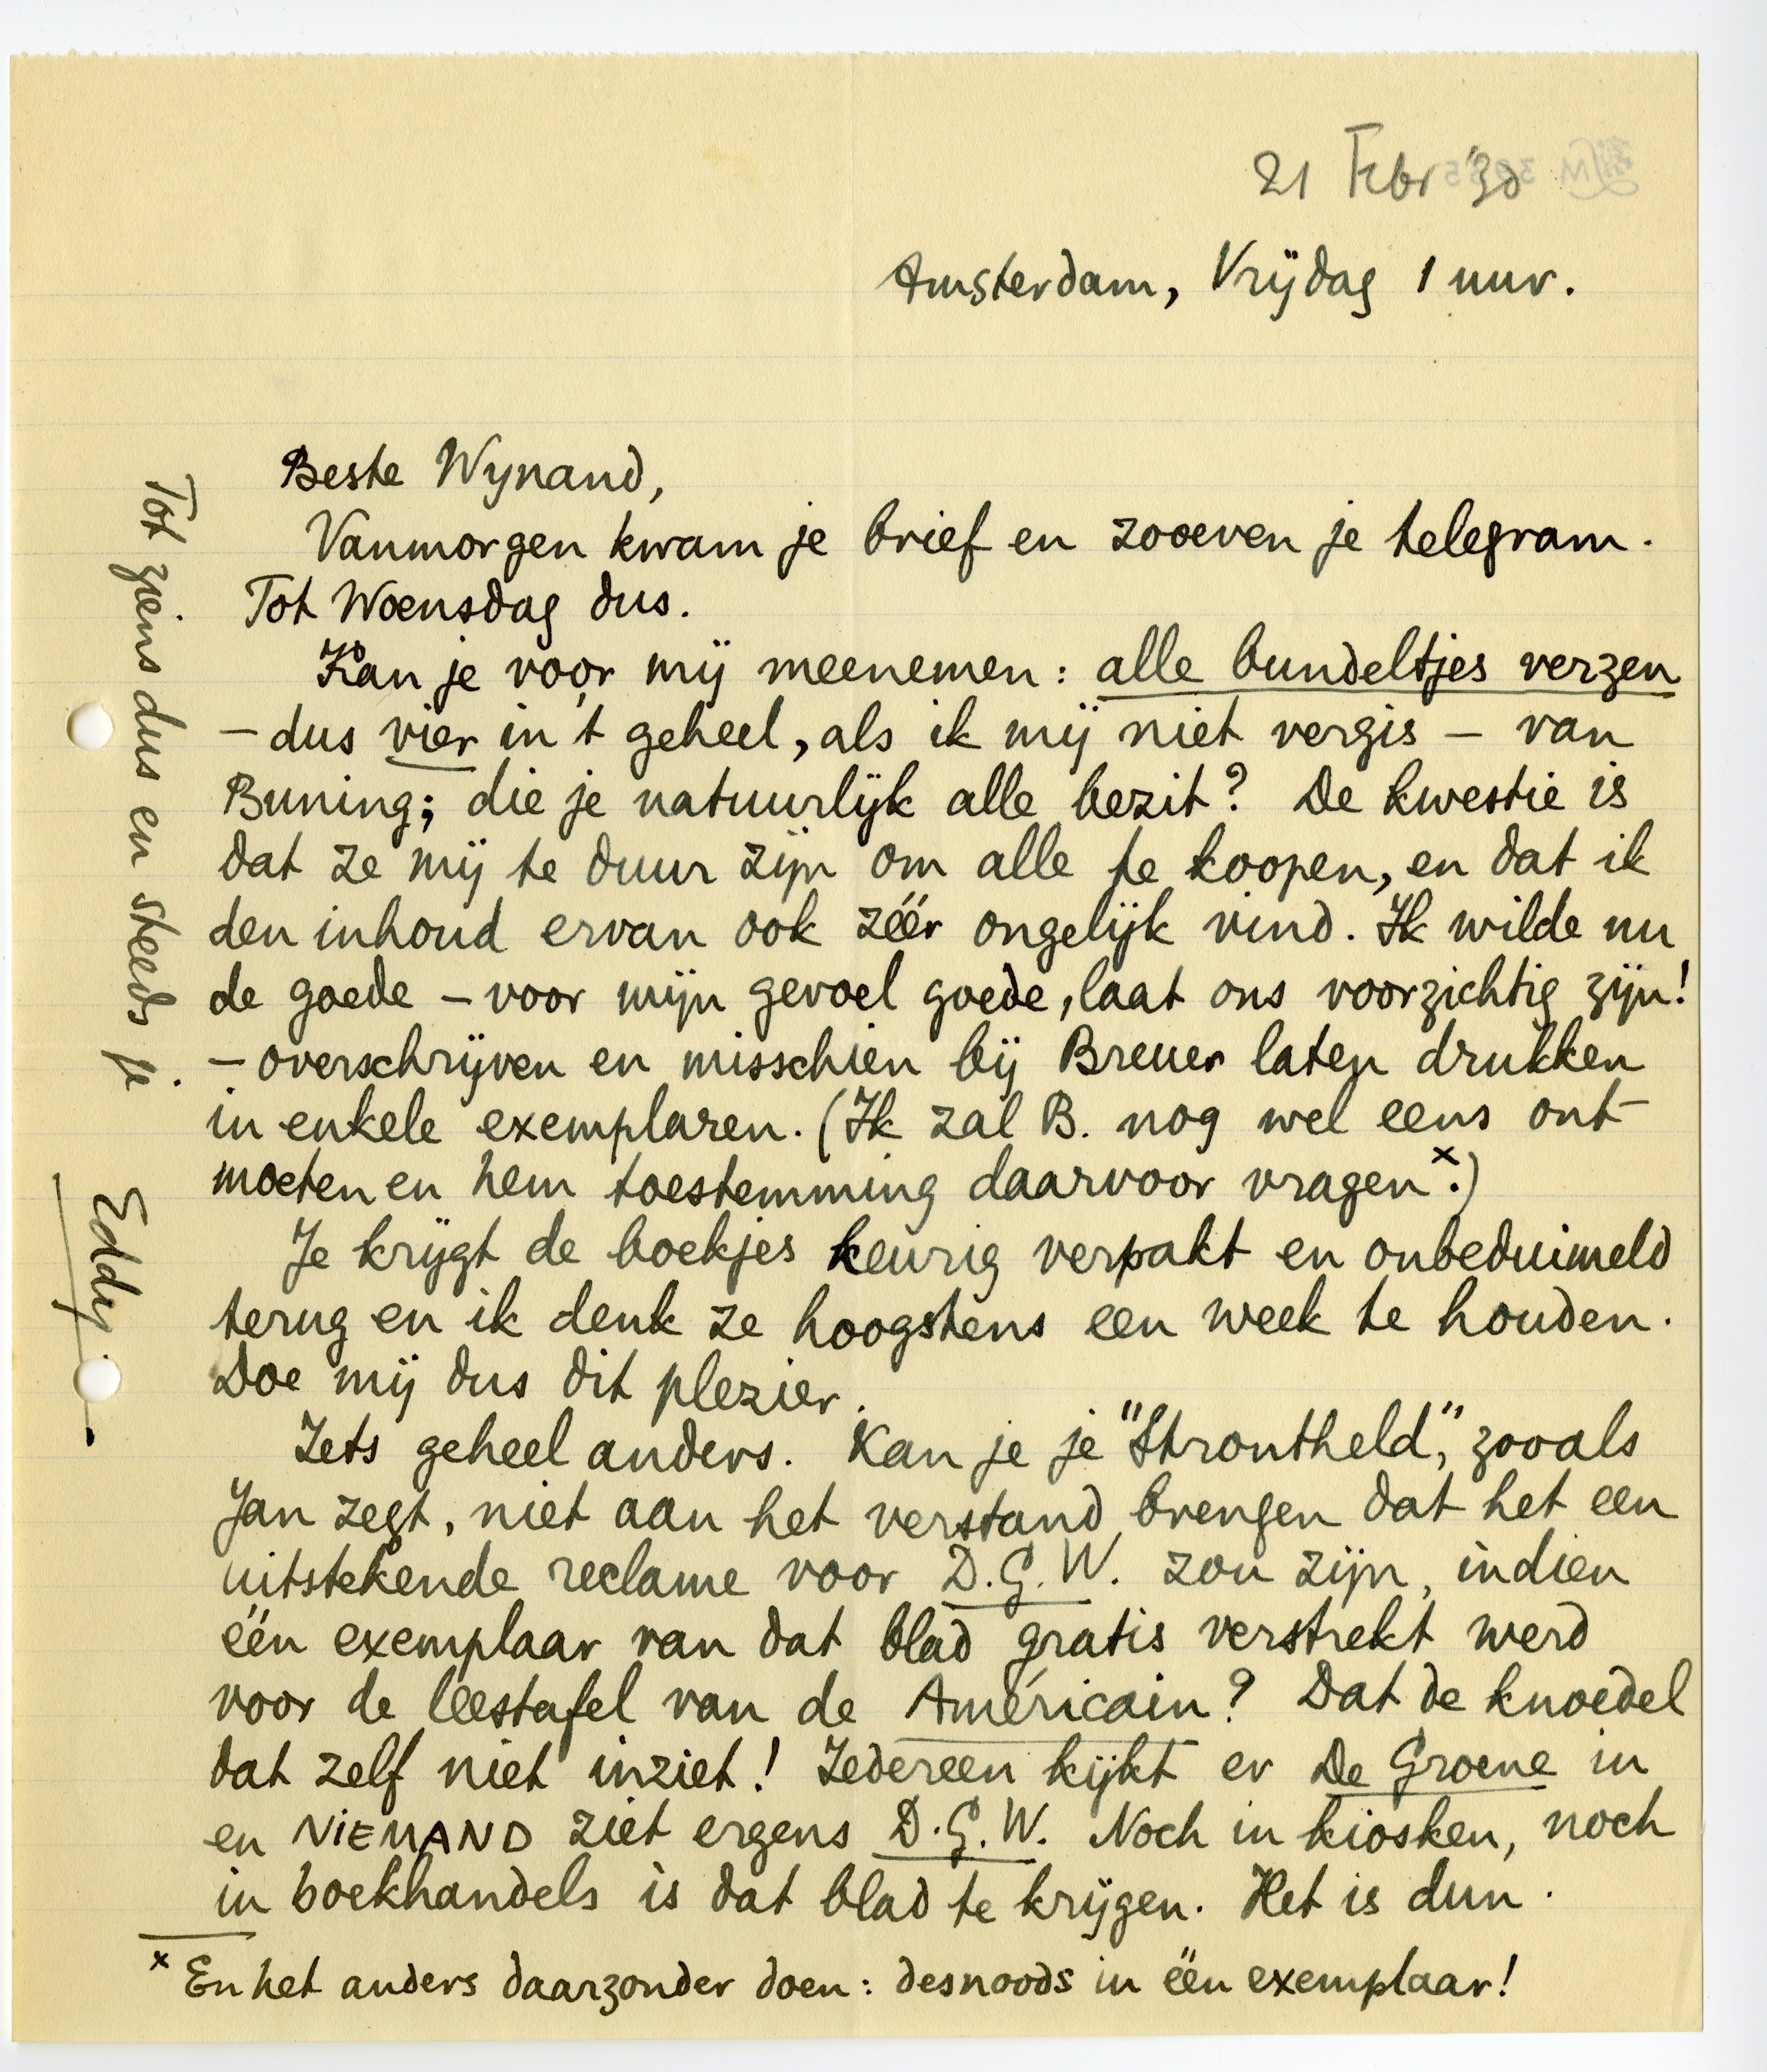 21 Febr '30
Amsterdam, Vrijdag 1 uur.
Beste Wynand,
Vanmorgen kwam je brief en zooeven je telegram.
Tot Woensdag dus.
Kan je voor mij meenemen: alle bundeltjes verzen
– dus vier in 't geheel, als ik mij niet vergis – van
Buning; die je natuurlijk alle bezit? De kwestie is
dat ze mij te duur zijn om alle te koopen, en dat ik
den inhoud ervan ook zéér ongelijk vind. Ik wilde nu
de goede – voor mijn gevoel goede, laat ons voorzichtig zijn!
– overschrijven en misschien bij Breuer laten drukken
in enkele exemplaren. (Ik zal B. nog wel eens ont-
moeten en hem toestemming daarvoor vragen x.)
Je krijgt de boekjes keurig verpakt en onbeduimeld
terug en ik denk ze hoogstens een week te houden.
Doe mij dus dit plezier.
Iets geheel anders. Kan je je "Strontheld", zooals
Jan zegt, niet aan het verstand brengen dat het een
uitstekende reclame voor D.G.W. zou zijn, indien
één exemplaar van dat blad gratis verstrekt werd
voor de leestafel van de Américain? Dat de knoedel
dat zelf niet inziet! Iedereen kijkt er De Groene in
en NIEMAND ziet ergens D.G.W. Noch in kiosken, noch
in boekhandels is dat blad te krijgen. Het is dun.
x En het anders daarzonder doen: desnoods in één exemplaar!
Tot ziens dus en steeds je.
Eddy.